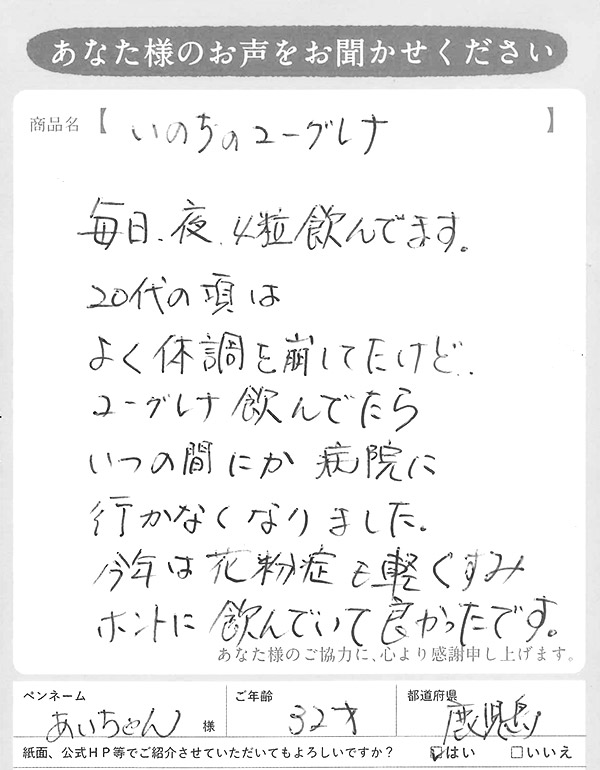 あなた様のお声をお聞かせください
商品名【いのちのユーグレナ】
毎日、夜、4粒飲んでます。
20代の頃は
よく体調を崩してたけど、
ユーグレナ飲んでたら
いつの間にか病院に
行かなくなりました。
今年は花粉症も軽くすみ
ホントに飲んでいて良かったです。
あなた様のご協力に、心より感謝申し上げます。
ペンネーム あいちゃん 様 ご年齢 32才 都道府県 鹿児島
紙面、公式HP等でご紹介させていただいてもよろしいですか？ ☑はい □いいえ